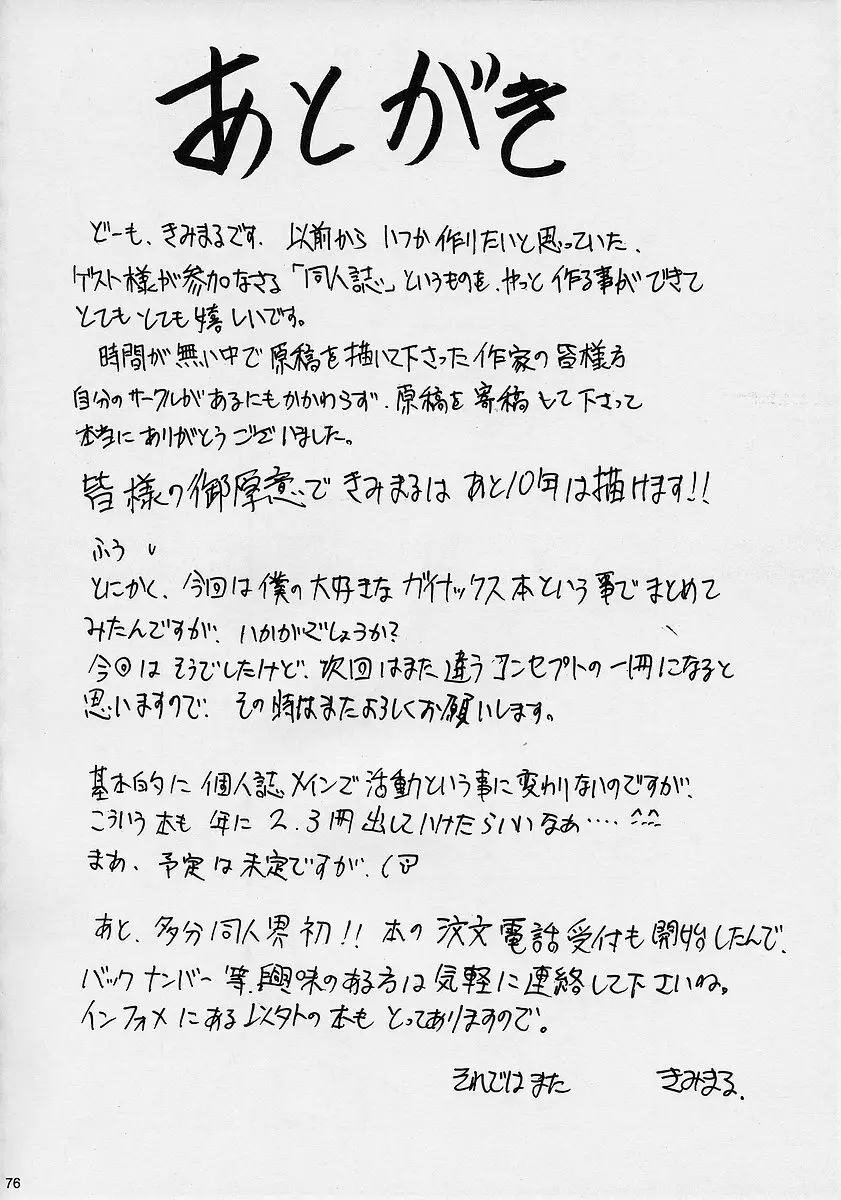 あとがき
どーも、きみまるです。以前から いつか作りたいと思っていた、
ゲスト様が参加なさる「同人誌」というものを、やっと作る事ができて
とてもとても嬉しいです。
時間が無い中で原稿を描いて下さった作家の皆様方
自分のサークルがあるにもかかわらず、原稿を寄稿して下さって
本当にありがとうございました。
皆様の御厚意で きみまるは あと10年は描けます!!
ふう
とにかく、今回は僕の大好きな ガイナックス本という事でまとめて
みたんですが、いかがでしょうか?
今回は そうでしたけど、次回はまた違うコンセプトの一冊になると
思いますので、その時はまたよろしくお願いします。
基本的に 個人誌メインで活動という事に変わりないのですが、
こういう本も 年に 2、3冊出していけたらいいなぁ‥‥^^
まあ、予定は未定ですが、(
あと、多分同人界初!! 本の注文電話受付も開始したんで、
バックナンバー等、興味のある方は気軽に連絡して下さいね。
インフォメにある以外の本も とってありますので。
それではまた きみまる.
76